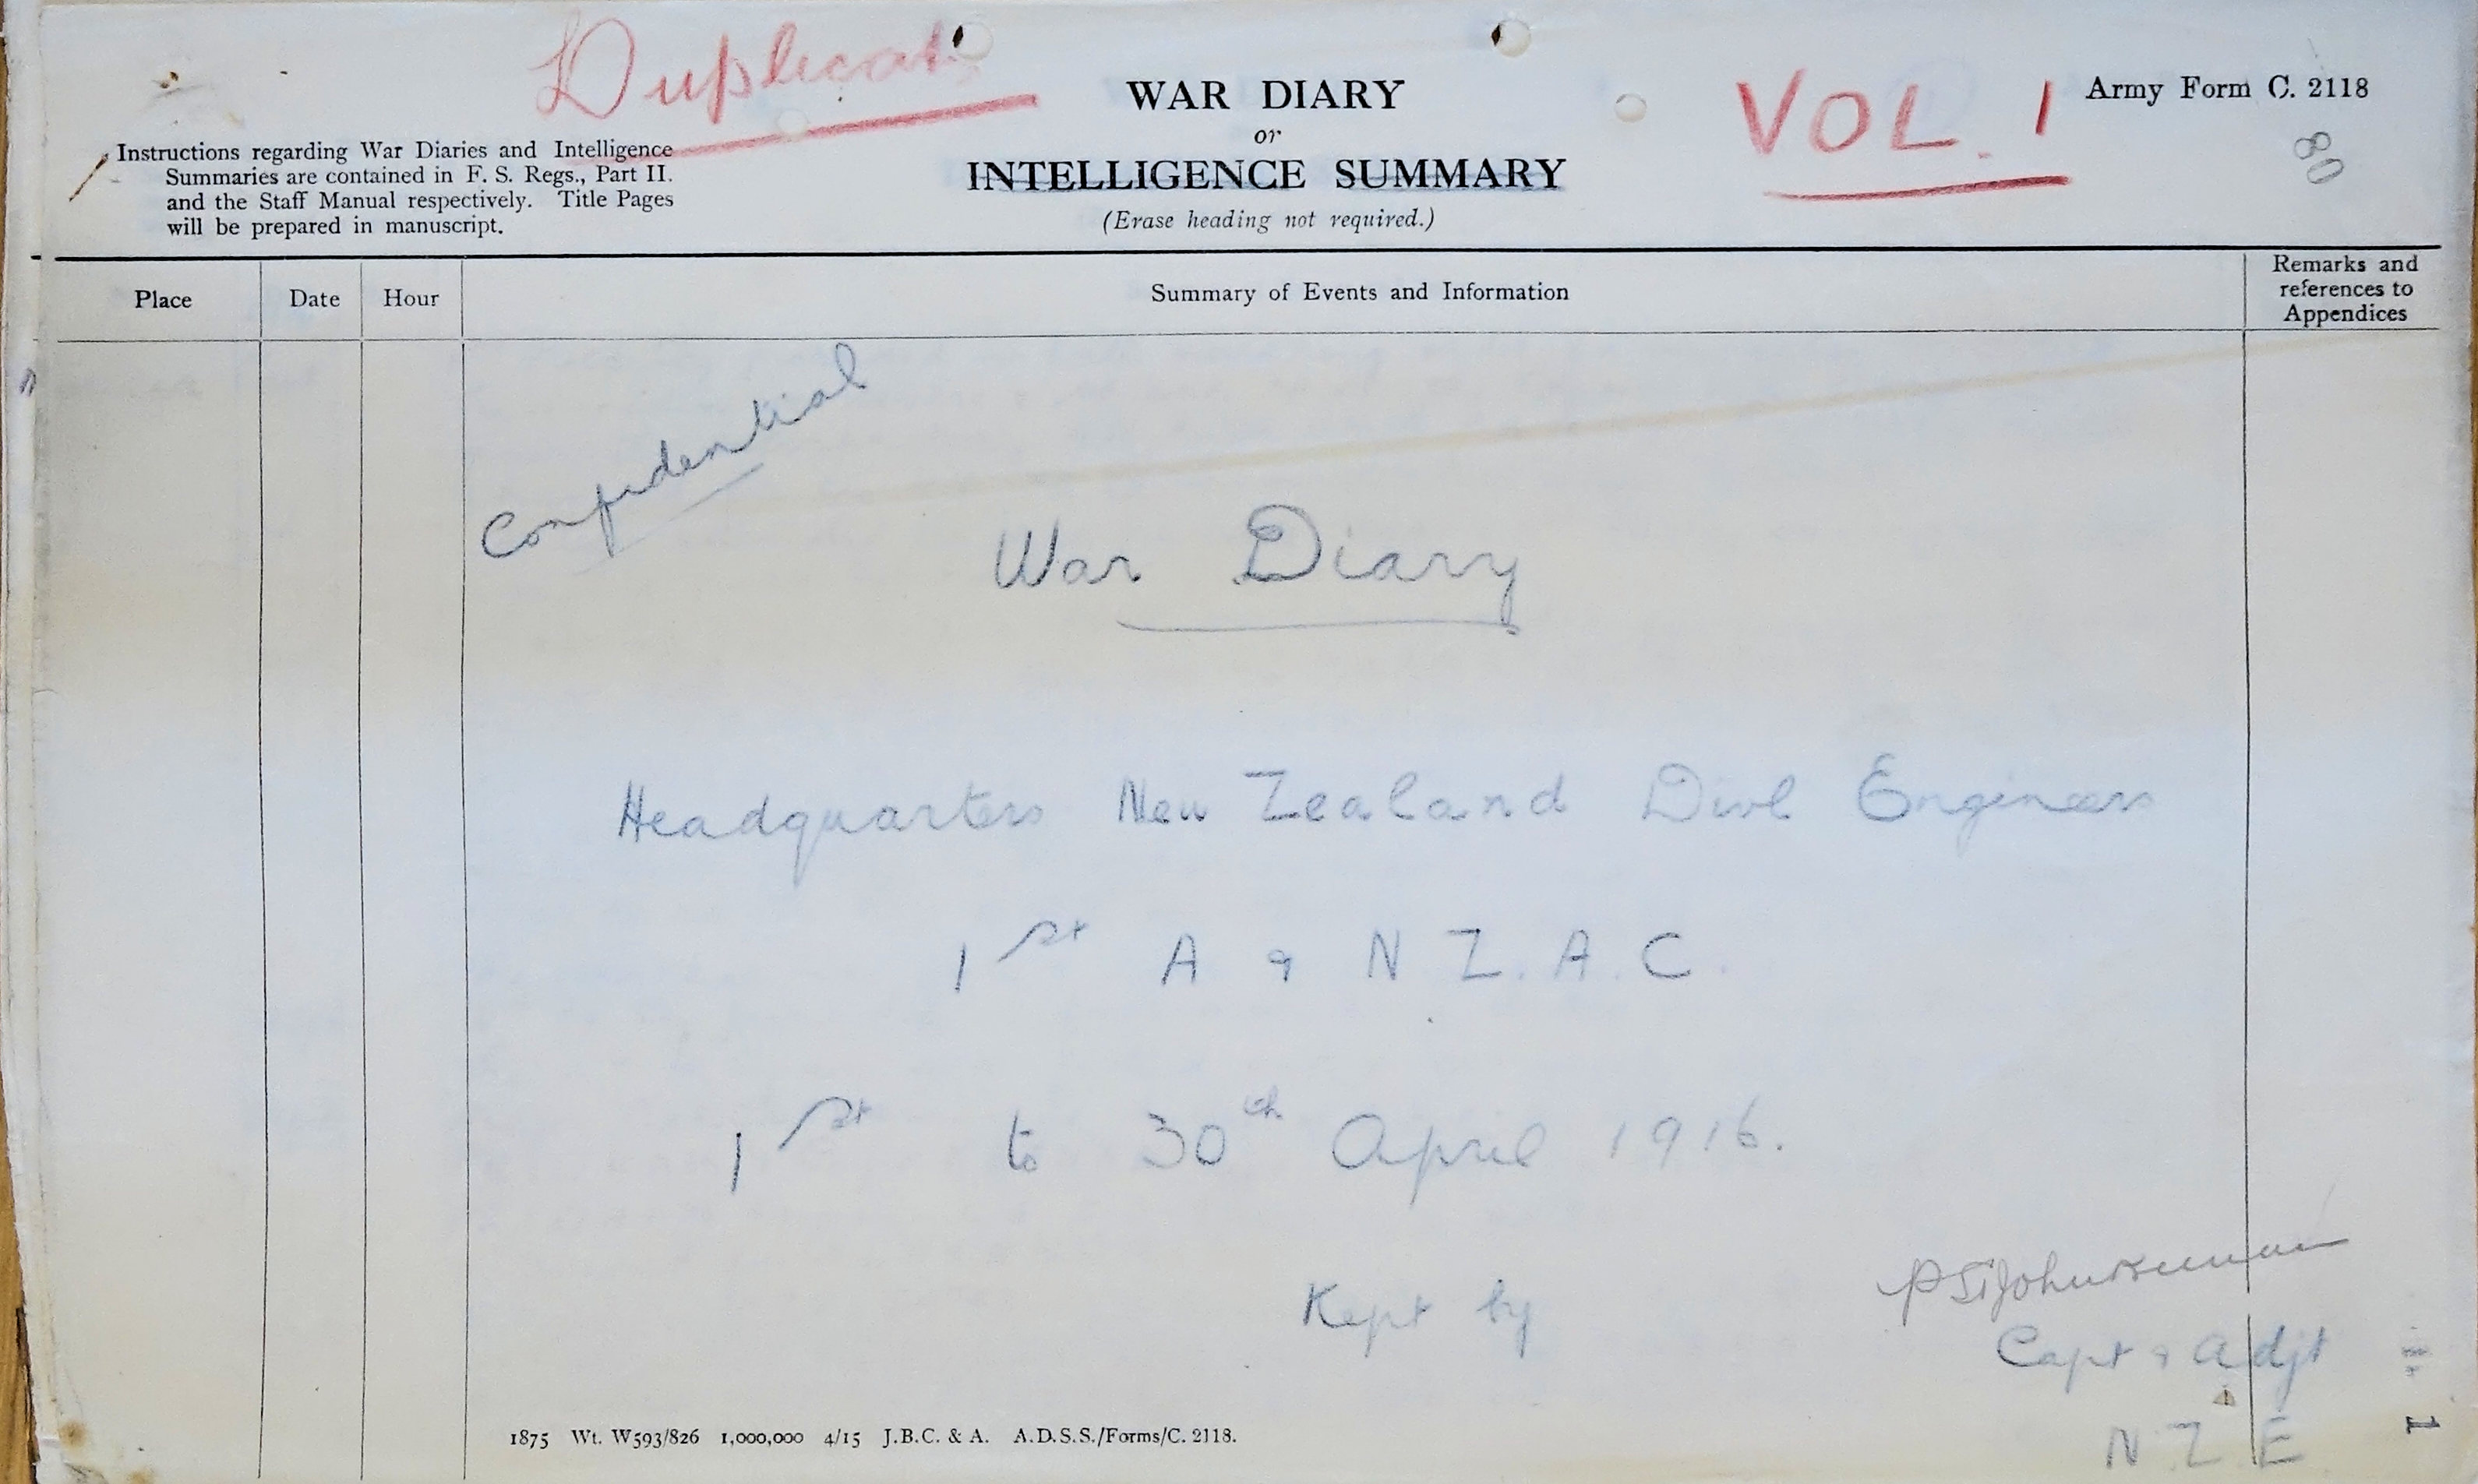 Duplicate
WAR DIARY
or
INTELLIGENCE SUMMARY
(Erase heading not required.)
VOL. 1
Army Form C. 2118
80
Instructions regarding War Diaries and Intelligence
Summaries are contained in F. S. Regs., Part II.
and the Staff Manual respectively. Title Pages
will be prepared in manuscript.
Place Date Hour Summary of Events and Information Remarks and
references to
Appendices
Confidential
War Diary
Headquarters New Zealand Divl Engineers
1st A & N Z. A. C.
1st to 30th April 1916.
Kept by
Capt & Adjt
N Z E
1875 Wt. W593/826 1,000,000 4/15 J.B.C. & A. A.D.S.S./Forms/C. 2118.
1